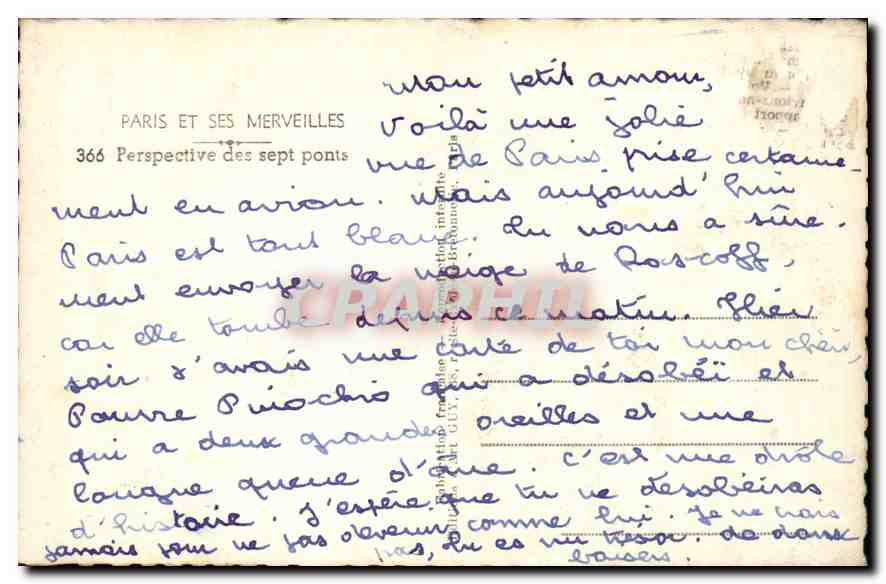 Mon petit amour,
PARIS ET SES MERVEILLES
Voilà une jolie
366 Perspective des sept ponts
vue de Paris prise certaine-
ment en avion. Mais aujourd'hui
Paris est tout blanc. Tu nous a sûre-
ment envoyer la neige de Roscoff,
car elle tombe depuis ce matin. Hier
soir j'avais une carte de toi mon chéri,
Pauvre Pinochio qui a désobéï et
qui a deux grandes oreilles et une
longue queue d'âne. C'est une drôle
d'histoire. J'espère que tu ne désobéiras
jamais pour ne pas devenir comme lui. Je ne crois
pas, tu es un trésor. de doux
baisers.
Fabrication française - Reproduction interdite
CPAPHIL